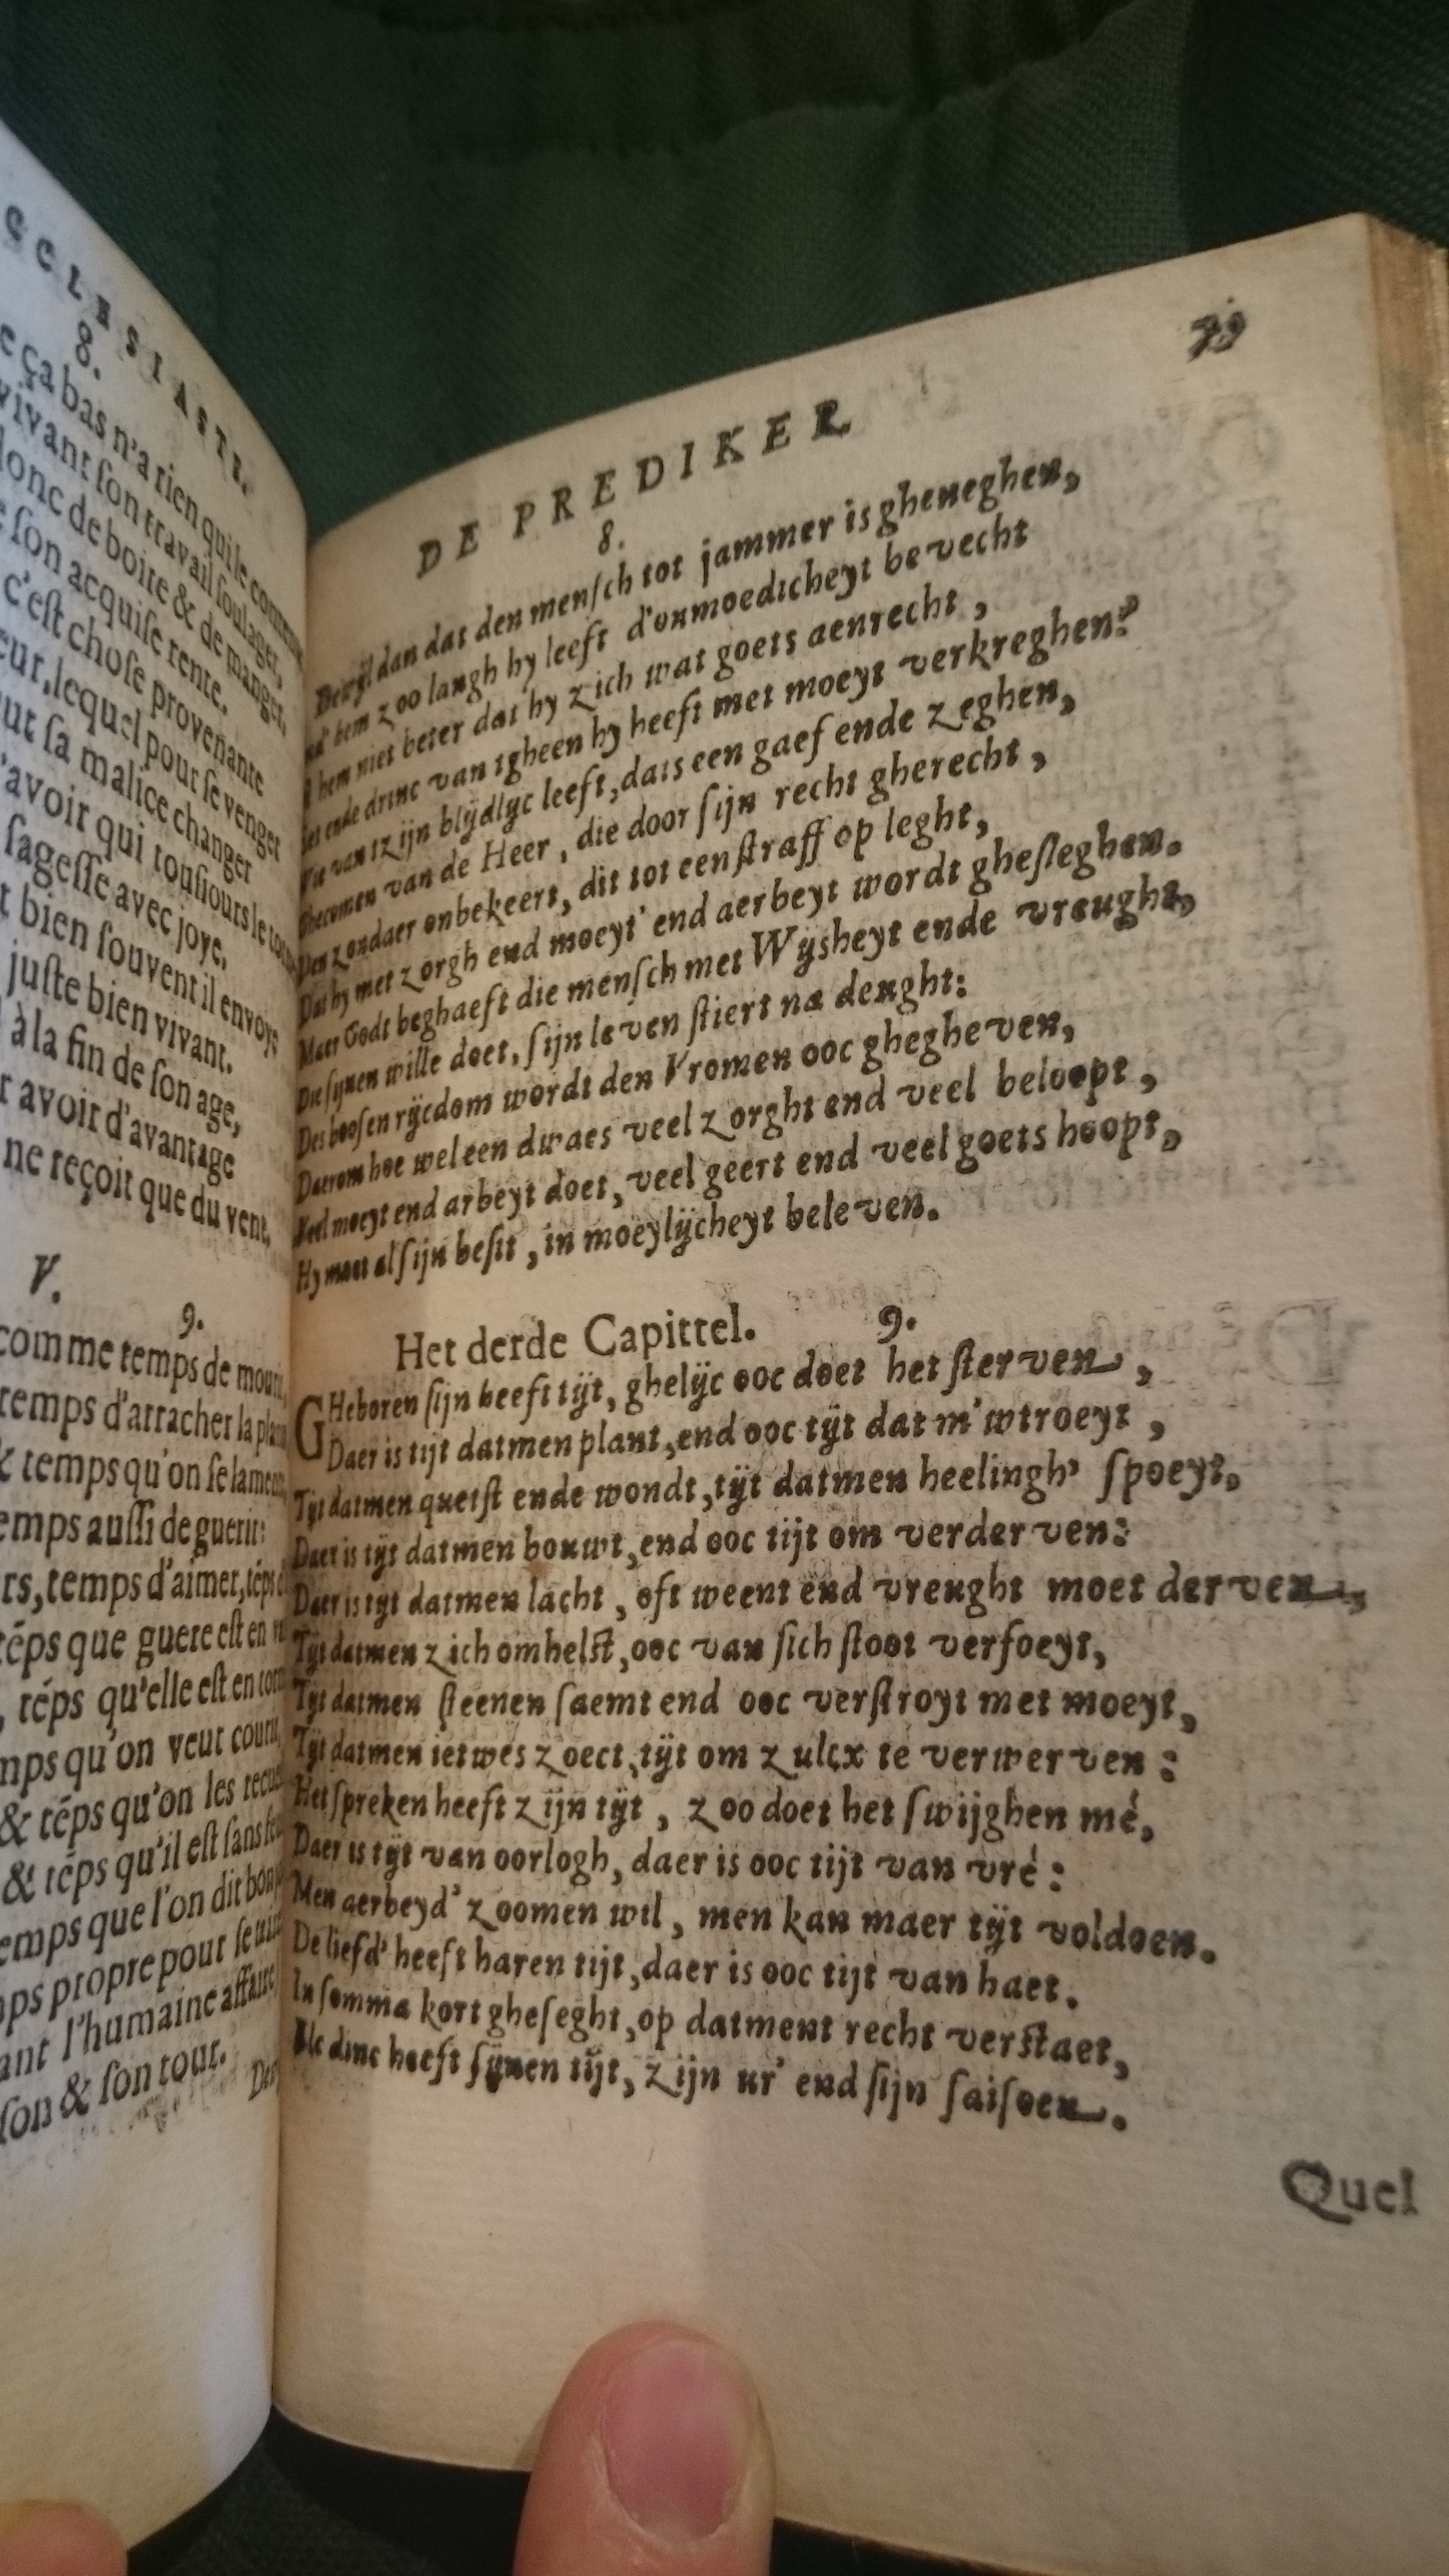 ECCLESIASTE.
8.
e ça bas n'a rien qui le contente
vivant son travail soulager,
donc de boire & de manger,
son acquise rente.
c'est chose provenante
eur, lequel pour se venger
ut sa malice changer
'avoir qui tousiours le
sagesse avec joye.
t bien souvent il envoye
juste bien vivant.
à la fin de son age,
r avoir d'avantage
ne reçoit que du vent.
V.
9.
comme temps de mourir,
temps d'arracher la plan
& temps qu'on se lamente
emps aussi de guerir:
rs, temps d'aimer, téps
téps que guere est en
, téps qu'elle est en
mps qu'on veut courir,
& téps qu'on les recue
& téps qu'il est sans
emps que l'on dit bon
ps propre pour se
ant l'humaine affaire
son & son tour.
DE PREDIKER
79
8.
Dewijl dan dat den mensch tot jammer is gheneghen,
end' hem zoo langh hy leeft d'onmoedicheyt bevecht
Is hem niet beter dat hy zich wat goets aenrecht,
Eet ende drinc van tgheen hy heeft met moeyt verkreghen?
Wie van tzijn blijdlyc leeft, dats een gaef ende zeghen,
Ghecomen van de Heer, die door sijn recht gherecht,
Den zondaer onbekeert, dit tot een straff op leght,
Dat hy met zorgh end moeyt' end aerbeyt wordt ghesleghen.
Maer Godt beghaeft die mensch met Wijsheyt ende vreught,
Die sijnen wille doet, sijn leven stiert na deught:
Des boosen rijcdom wordt den Vromen ooc ghegheven,
Daerom hoe wel een dwaes veel zorght end veel beloopt,
Veel moeyt end arbeyt doet, veel geert end veel goets hoopt,
Hy moet al sijn besit, in moeylijcheyt beleven.
Het derde Capittel. 9.
GHeboren sijn heeft tijt, ghelijc ooc doet het sterven,
Daer is tijt datmen plant, end ooc tijt dat m'wtroeyt,
Tijt datmen quetst ende wondt, tijt datmen heelingh' spoeyt,
Daer is tijt datmen bouwt, end ooc tijt om verderven:
Daer is tijt datmen lacht, oft weent end vreught moet derven,
Tijt datmen zich omhelst, ooc van sich stoot verfoeyt,
Tijt datmen steenen saemt end ooc verstroyt met moeyt,
Tijt datmen ietwes zoect, tijt om zulcx te verwerven:
Het spreken heeft zijn tijt, zoo doet het swijghen mé,
Daer is tijt van oorlogh, daer is ooc tijt van vré:
Men aerbeyd' zoomen wil, men kan maer tijt voldoen.
De liefd' heeft haren tijt, daer is ooc tijt van haet.
In somma kort gheseght, op datment recht verstaet,
Elc dinc heeft sijnen tijt, zijn ur' end sijn saisoen.
Quel